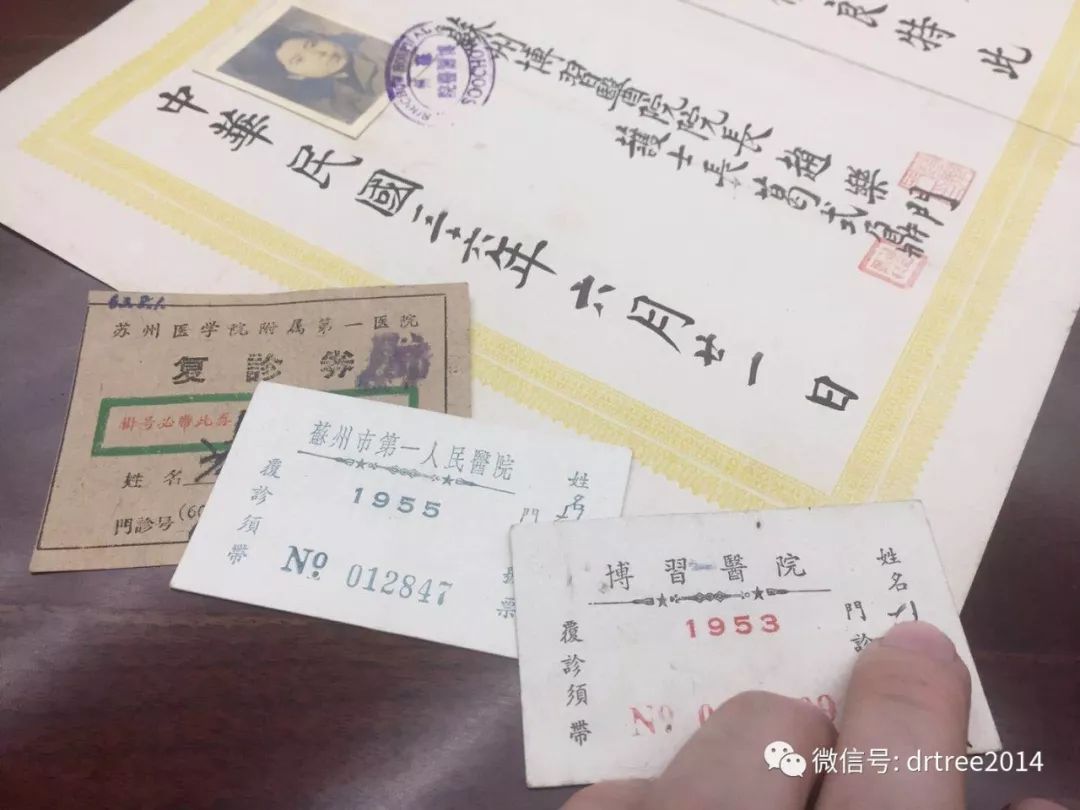 良特
此
蘇州博習醫院院長趙樂門
護士長葛式
中華民國三十六年六月廿一日
SOOCHOW
苏州医学院附属第一医院
复診券
掛号必带此券
姓名
門診号(60
蘇州市第一人民醫院
1955
覆診須帶
No 012847
姓名
門
票
博習醫院
1953
覆診須帶
No
姓名
門診
微信号: drtree2014